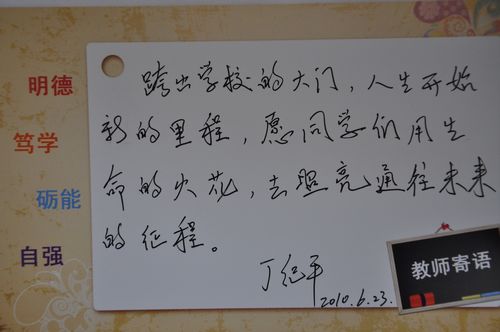 明德
笃学
砺能
自强
跨出学校的大门，人生开始
新的里程，愿同学们用生
命的火花，去照亮通往未来
的征程。
丁纪平
2010.6.23.
教师寄语